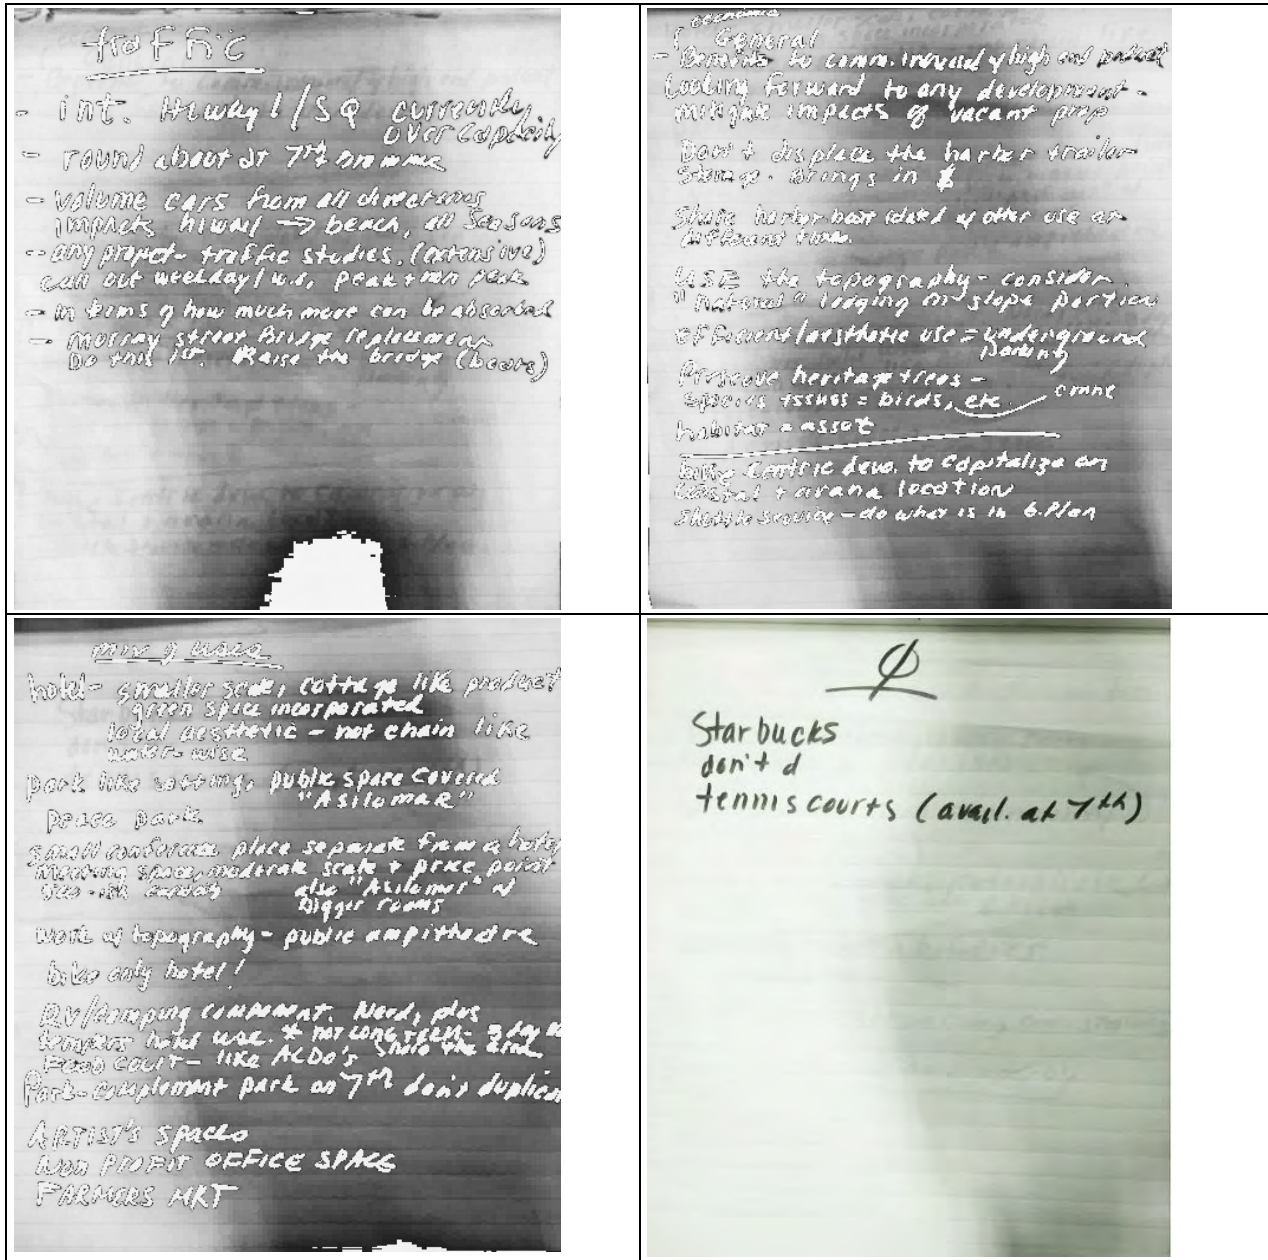 traffic
- int. Hiway 1/SQ currently
over capacity
- round about at 7th
- volume cars from all directions
impacts hiway → beach, all seasons
- any project - traffic studies. (extensive)
call out weekday/ w.e, peak + non peak
- in terms of how much more can be absorbed
- murray street Bridge replacement
Do this 1st. Raise the bridge (boats)
economic
General
- Benefits to comm. inward w/high end
Looking forward to any development -
mitigate impacts of vacant prop
Don't displace the harber trailer
storage. Brings in $
Share harbor boat w/ other use at
different times.
USE the topography - consider
"Natural" lodging on slope portion
efficient/aesthetic use = underground
parking
Preserve heritage trees -
species issues = birds, etc.
habitat = asset
bike centric deve. to capitalize on
coastal + arana location
Shuttle service - do what is in G. Plan
mix of uses
hotel - smaller scale, cottage like product
green space incorporated
local aesthetic - not chain like
water-wise
park like setting, public space covered
"ASILOMAR"
peace park
small conference place separate from a hotel
meeting space, moderate scale + price point
also "Asilomar" w/
bigger rooms
work w/ topography - public ampitheatre
bike only hotel!
RV/camping component. Need, plus
tempers hotel use. * not long term - 3 day
FOOD COURT - like ALDO's share the area
Park - complement park on 7th don't
ARTIST'S SPACES
NON PROFIT OFFICE SPACE
FARMERS MKT
Starbucks
don't d
tennis courts (avail. at 7th)